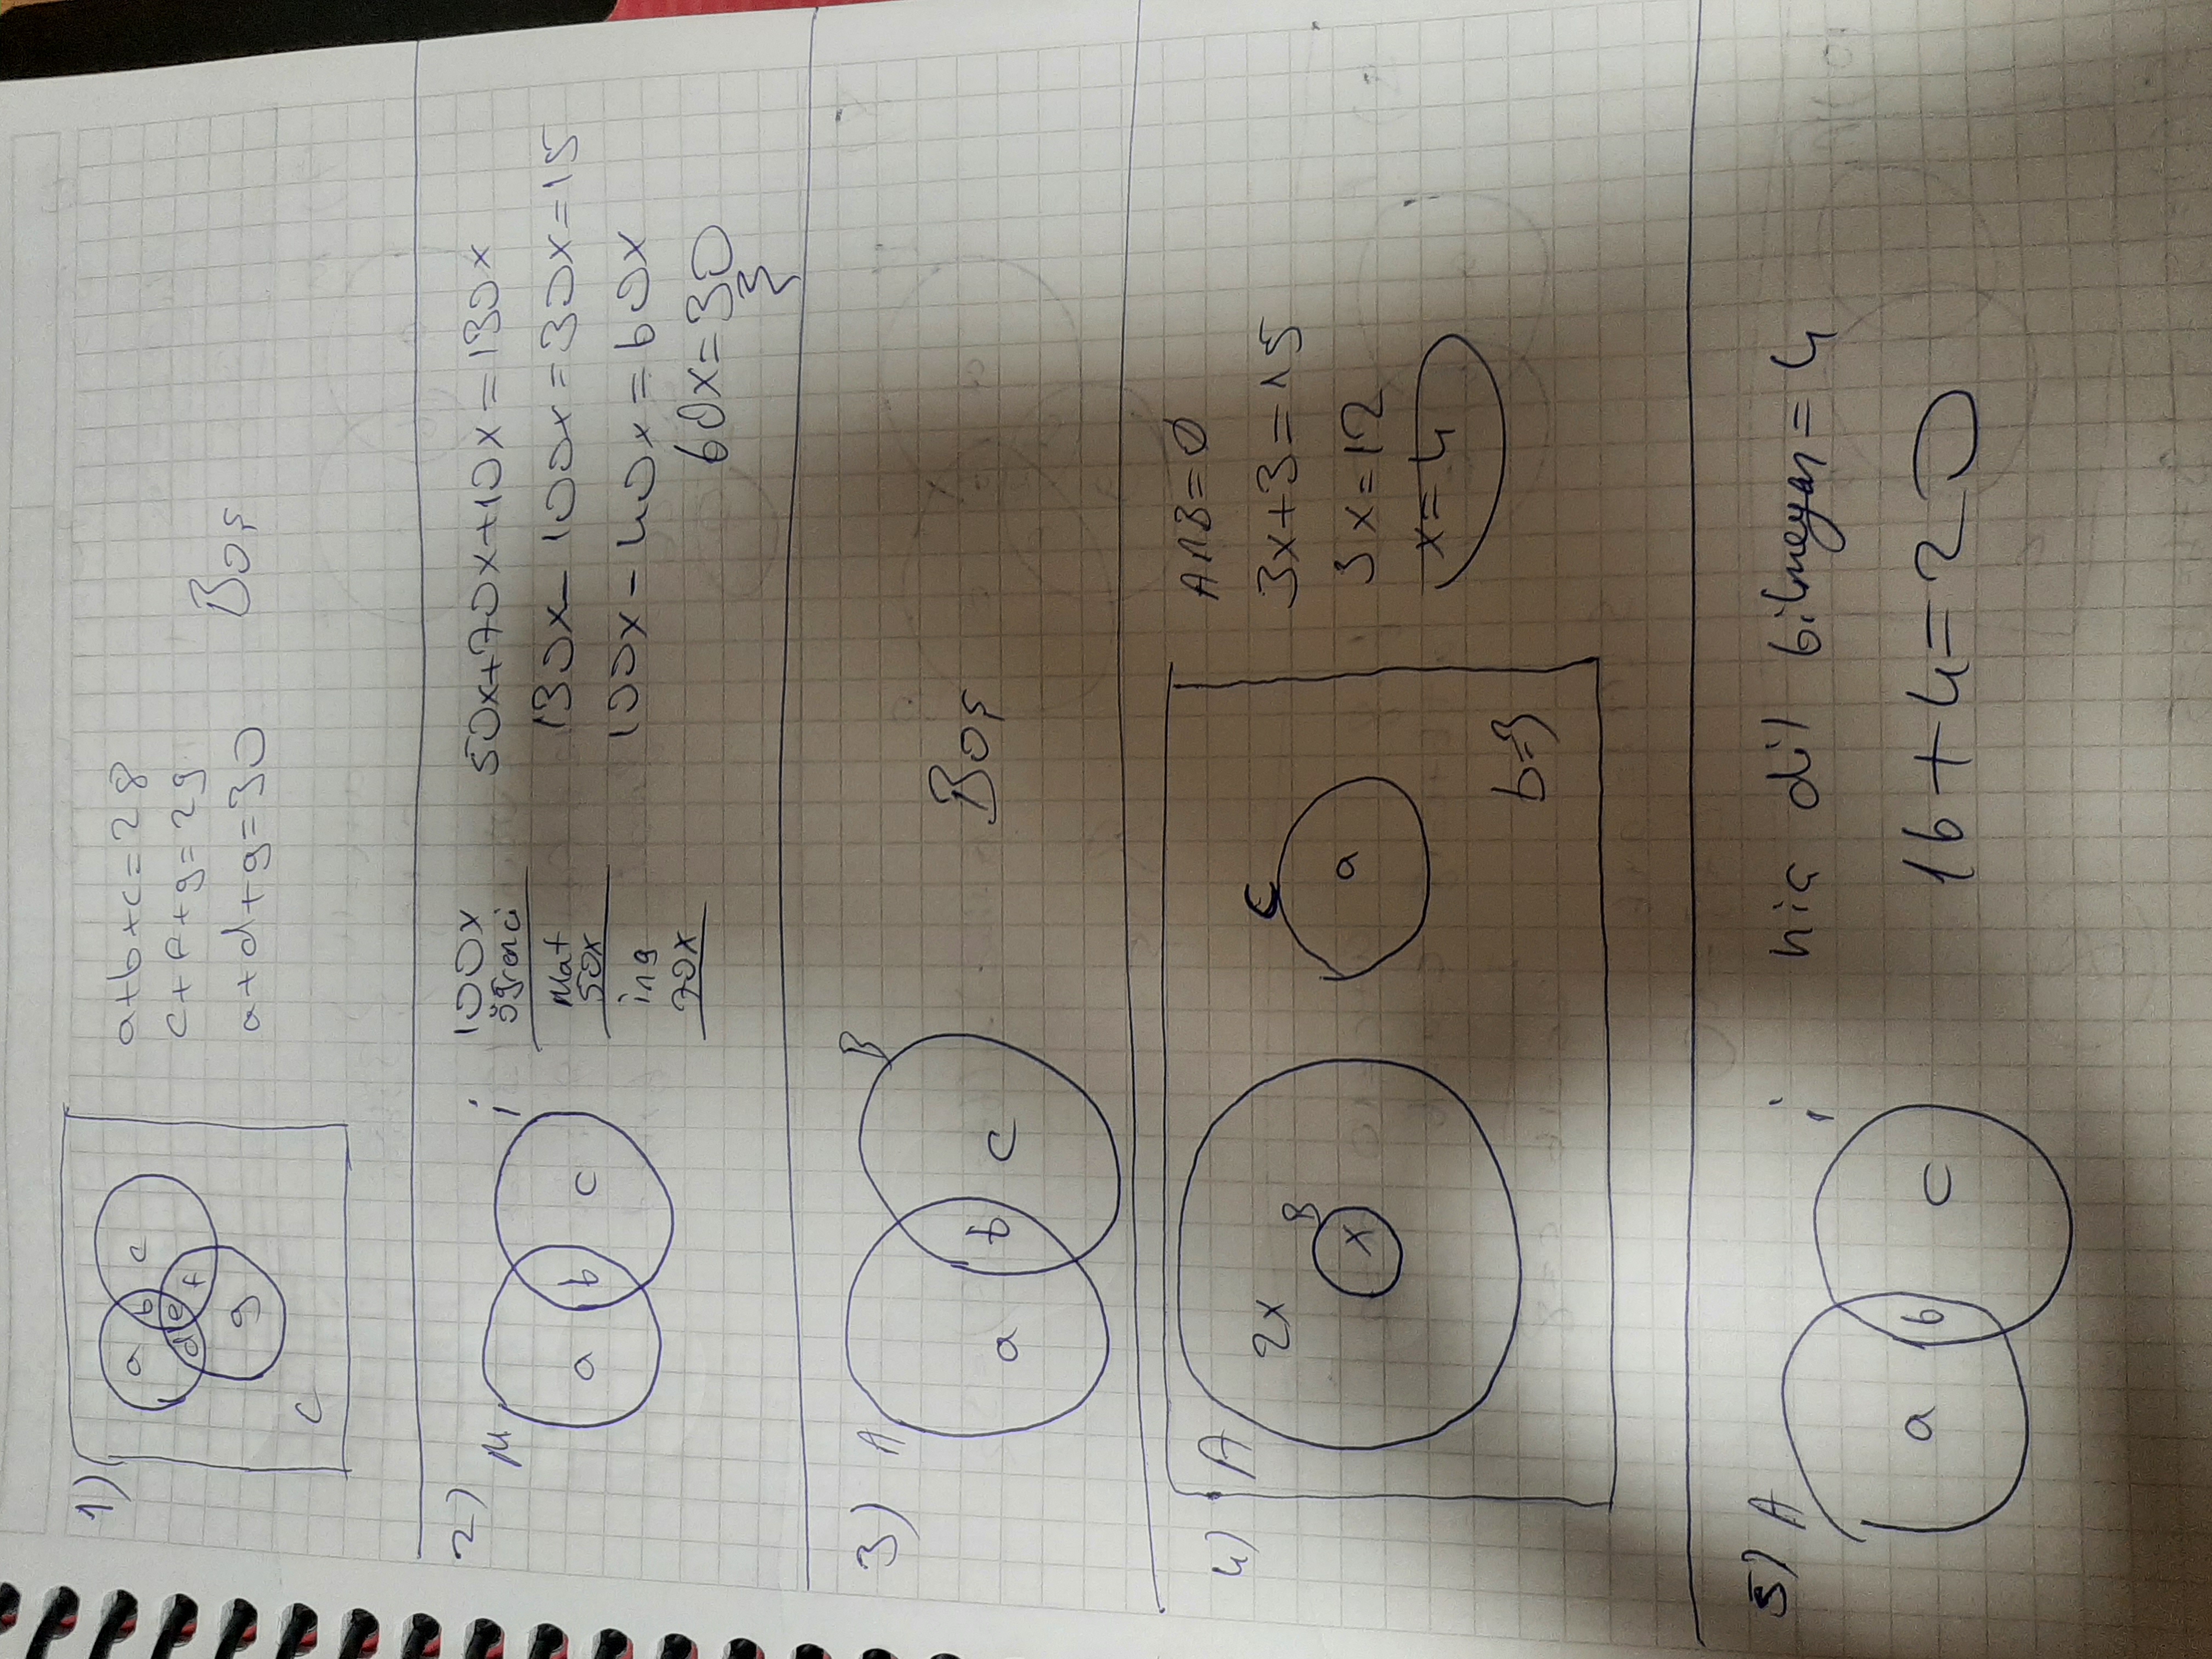 1)
a
b
c
d
e
f
g
C
a+b+c=28
c+f+g=29
a+d+g=30
Boş
2)
M
İ
a
b
c
100x
öğrenci
Mat
50x
ing
70x
50x+70x+10x=130x
130x-100x=30x=15
100x-40x=60x
60x=30
3)
A
B
a
b
c
Boş
4)
A
2x
B
x
C
a
b=3
A∩B=0
3x+3=15
3x=12
x=4
5)
A
İ
a
b
c
hiç dil bilmeyan=4
16+4=20